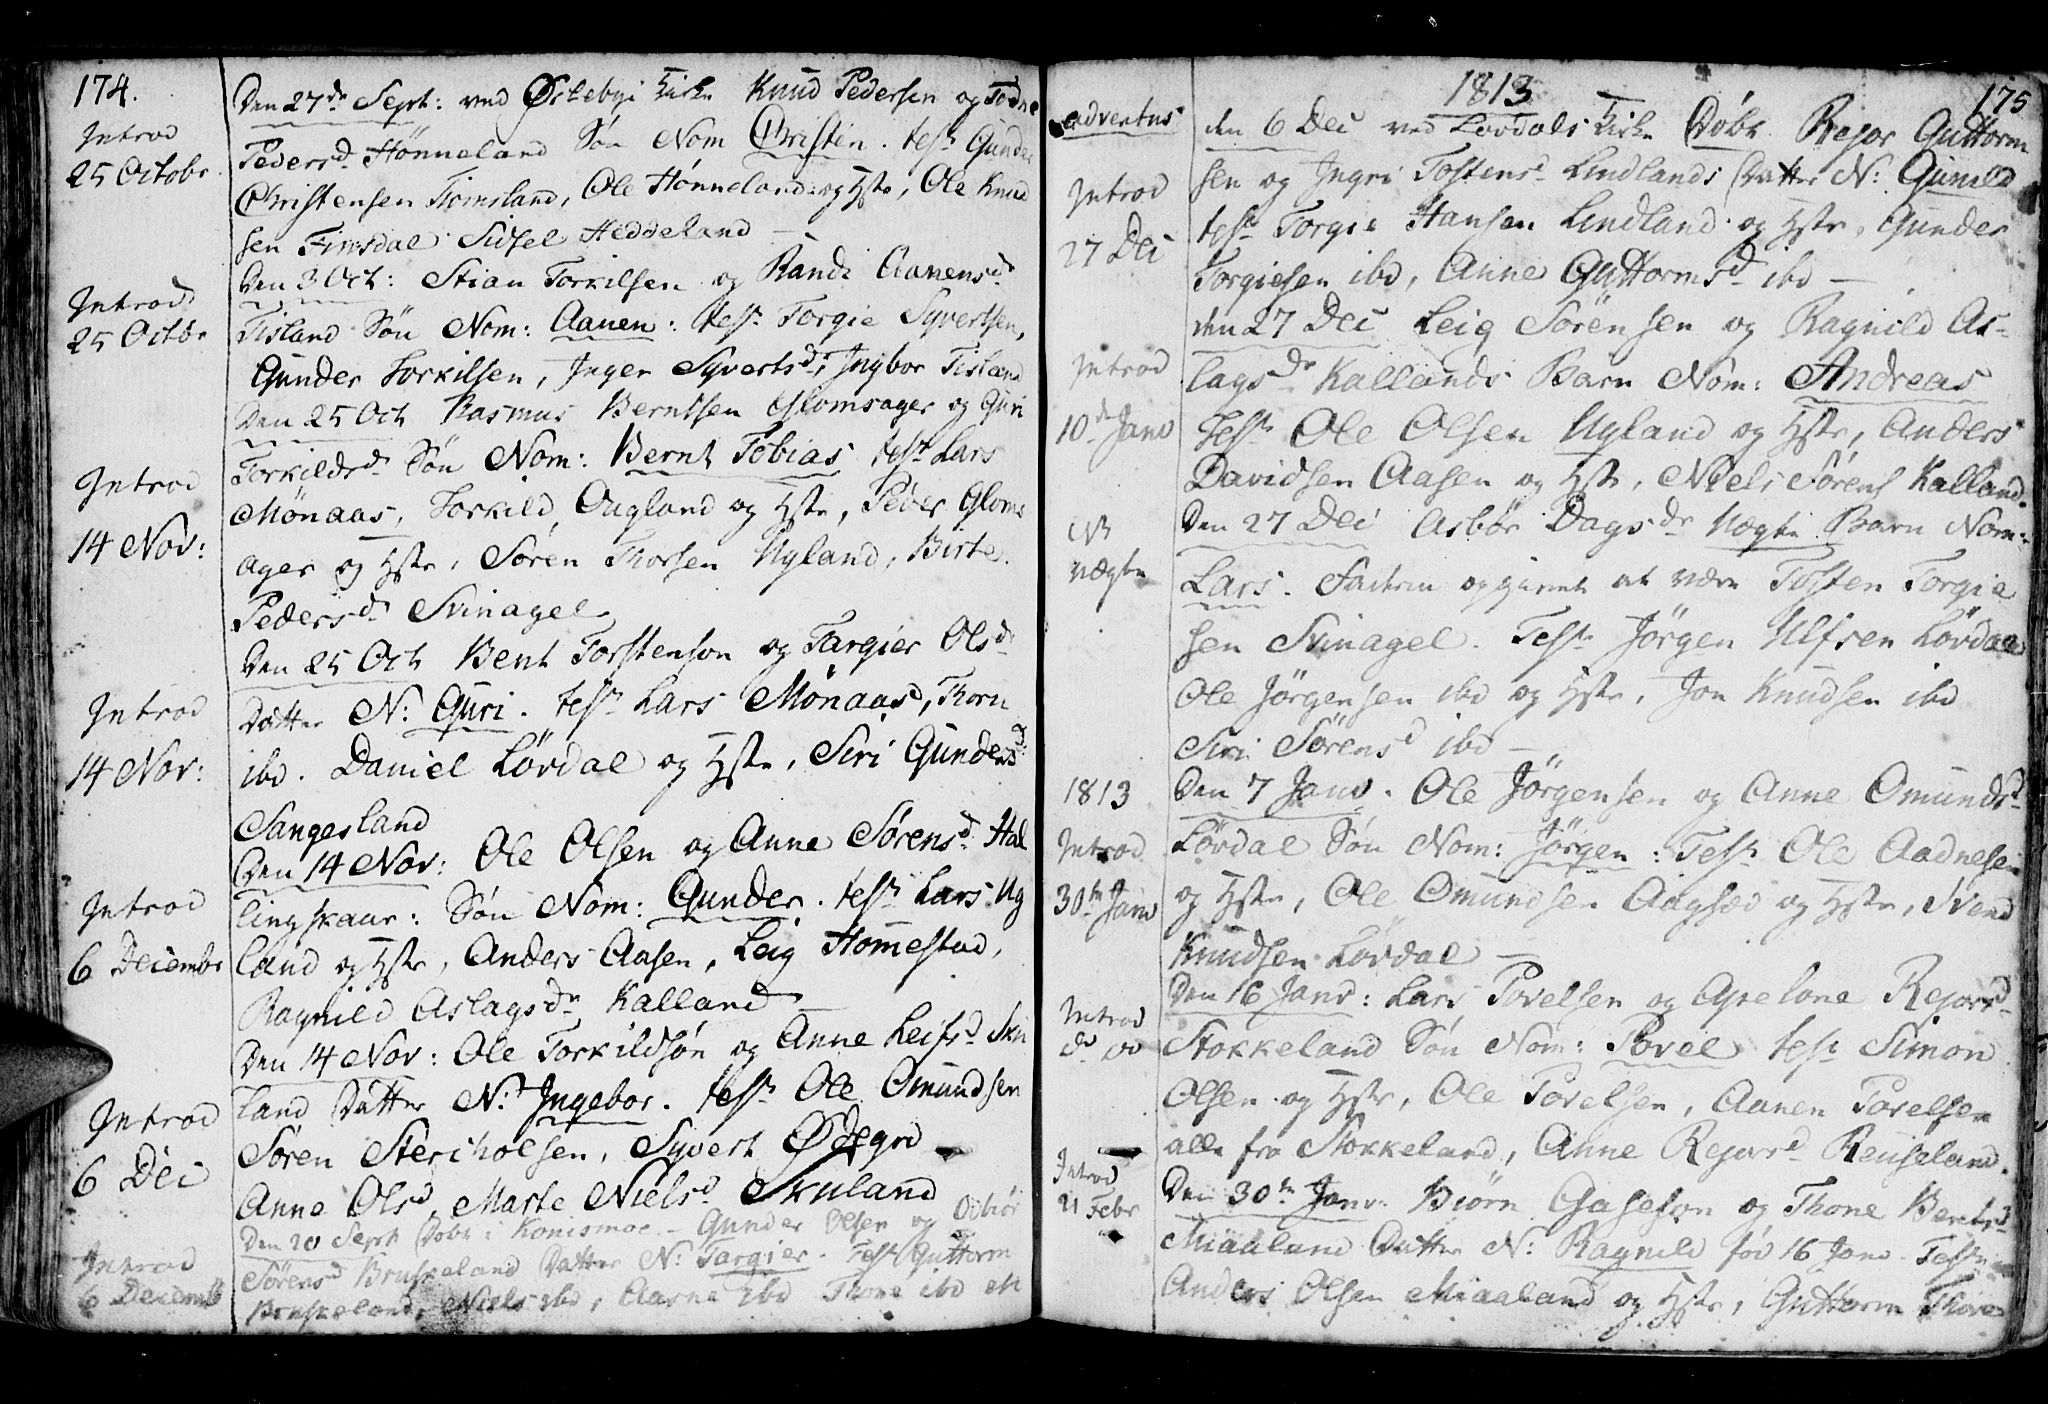 174.
Introd
25 Octobr
Den 27de Sept: ved Østebyi Kirke Knud Pedersen og Todne
Pedersd. Hönneland Sön Nom Christen. test: Gunder
Christensen Tiomsland, Ole Hönneland og Hstr, Ole Knud
sen Finsdal Sidsel Heddeland —
Introd
25 Octbr
Den 3 Oct: Stian Torkilsen og Randi Aanensd.
Tisland Sön Nom: Aanen: test: Torgie Syvertsen,
Gunder Torkilsen, Inger Syvertsd, Ingbor Tisland
Introd
14 Nov:
Den 25 Oct Rasmus Berntsen Glomsager og Guri
Torkildsd. Sön Nom: Bernt Tobias test: Lars
Mönaas, Torkild Ougland og Hstr, Peder Gloms
ager og Hstr, Sören Thorsen Ugland, Birte
Pedersd Svinagel
Introd
14 Nov:
Den 25 Oct Bent Torstenson og Targier Olsd.
Datter N: Guri. test: Lars Mönaas, Thorn
ibd. Daniel Lövdal og Hstr, Siri Gundersd:
Sangesland
Introd
6 Decembr
Den 14 Nov: Ole Olsen og Anne Sörensd. Hal
lingskaar: Sön Nom: Gunder. test: Lars Ug
land og Hstr, Anders Aasen, Leig Homestad,
Ragnild Aslagsdr Kalland —
Introd
6 Dec
Den 14 Nov: Ole Torkildsön og Anne Leifsd. Sku
land Datter N: Ingebor. test: Ole Omundsen
Sören Stercholsen, Syvert Ødegrd
Anne Olsd, Marte Nielsd Skuland
Introd
6 Decemb
Den 20 Sept Döbt i Konismoe — Gunder Olsen og Osbiör
Sörensd Bruskeland Datter N: Targier. Test: Guttorm
Bruskeland, Niels ibd, Aasne ibd Thone ibd
1813 175
adventus
Introd
27 Dec
den 6 Dec ved Lövdals Kirke Döbt Rejor Guttorm
sen og Ingri Tostensd. Lindlands Datter N: Gunild
test: Torgie Hansen Lindland og Hstr, Gunder
Torgiesen ibd, Anne Guttormsd ibd —
Introd
10de Janv
den 27 Dec Leig Sörensen og Ragnild As-
lagsdr Kallands Barn Nom: Andreas
Test: Ole Olsen Ugland og Hstr, Anders
Davidsen Aasen og Hstr, Niels Sörens Kalland.
NB
uægte
Den 27 Dec Asbör Dagsdr Uægte Barn Nom:
Lars. Faderen opgivet at være Tosten Torgie
sen Svinagel. Test: Jörgen Ulfsen Lövdal
Ole Jörgensen ibd og Hstr, Jon Knudsen ibd
Siri Sörensd ibd —
1813
Introd
30te Janv
Den 7 Janv. Ole Jörgensen og Anne Omundsd.
Lövdal Sön Nom: Jörgen: Test: Ole Aadnesen
og Hstr, Ole Omundsen Augsæd og Hstr, Svend
Knudsen Lövdal —
Introd
do do
Den 16 Janv: Lars Povelsen og Apelone Rejorsd.
Stokkeland Sön Nom: Povel test: Simon
Olsen og Hstr, Ole Povelsen, Aanen Povelsen
alle fra Stokkeland, Anne Rejorsd Reuseland.
Introd
21 Febr
Den 30te Janv. Biörn Gaseson og Thone Berntsd
Miaaland Datter N: Ragnild föd 16 Janv. Test:
Anders Olsen Miaaland og Hstr, Guttorm Thore